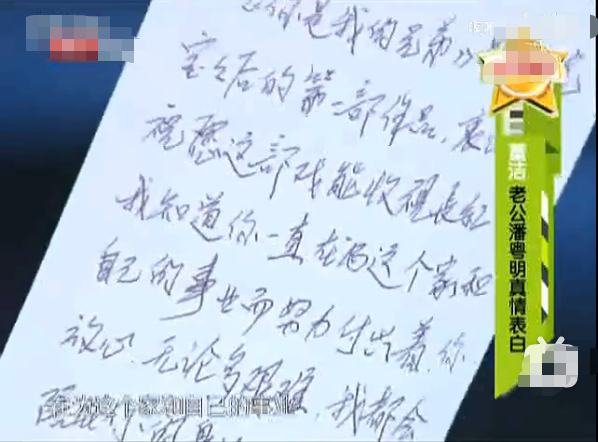 你是我的兄弟》
宝之后的第一部作品、衷
祝愿这部戏能收视长红
我知道你一直在为这个家和
自己的事业而努力付出着、你
放心、无论多艰难、我都会
在为这个家和自己的事业
董洁
老公潘粤明真情表白